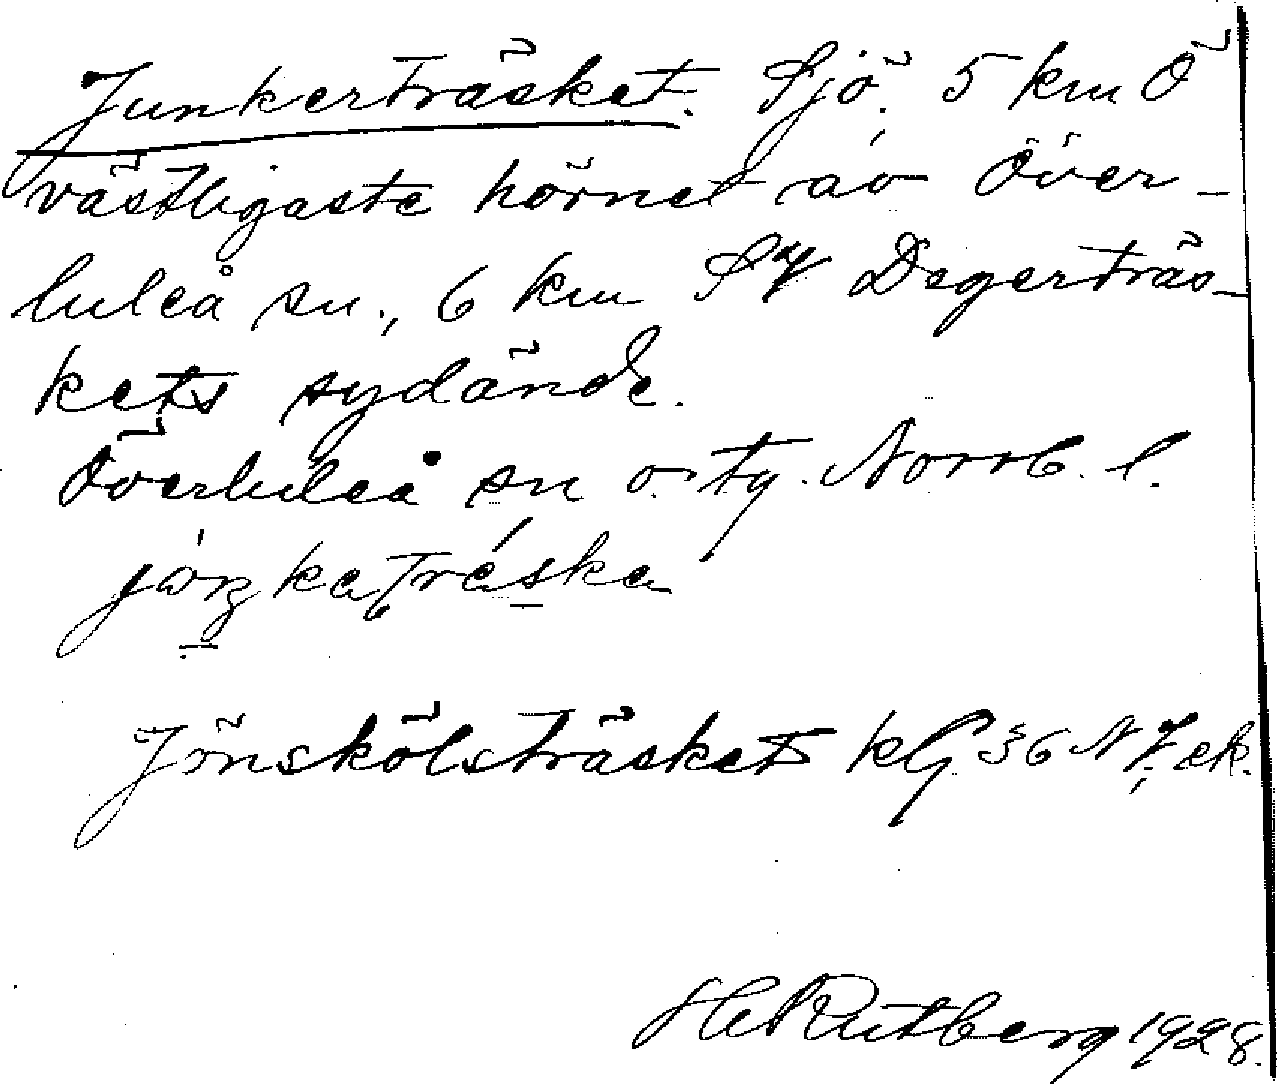 Junkerträsket. Sjö. 5 km Ö
västligaste hörnet av Över-
luleå sn., 6 km SV Degerträs-
kets sydände.
Överluleå sn o. ty. Norrb. l.
Jönskölsträsket kG 36 NV ek.
H Rutberg 1928.